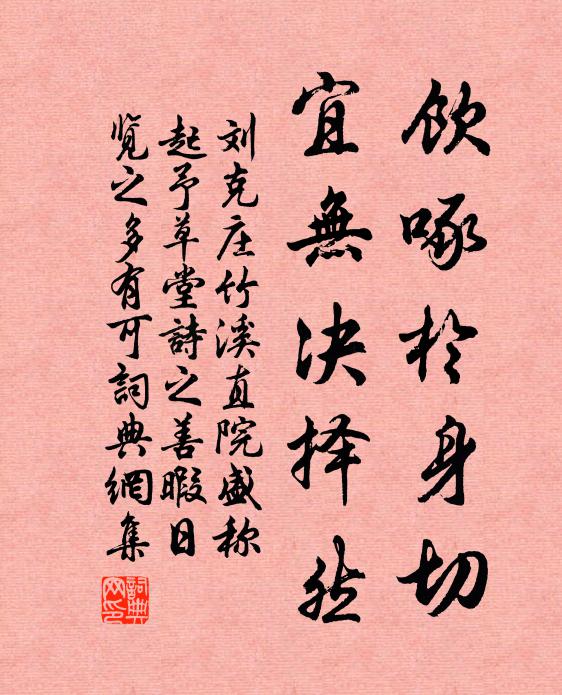 飲啄於身切
宜無决择然
刘克庄竹溪直院盛称
起予草堂詩之善暇日
覽之多有可詞典網集
詞典
网印